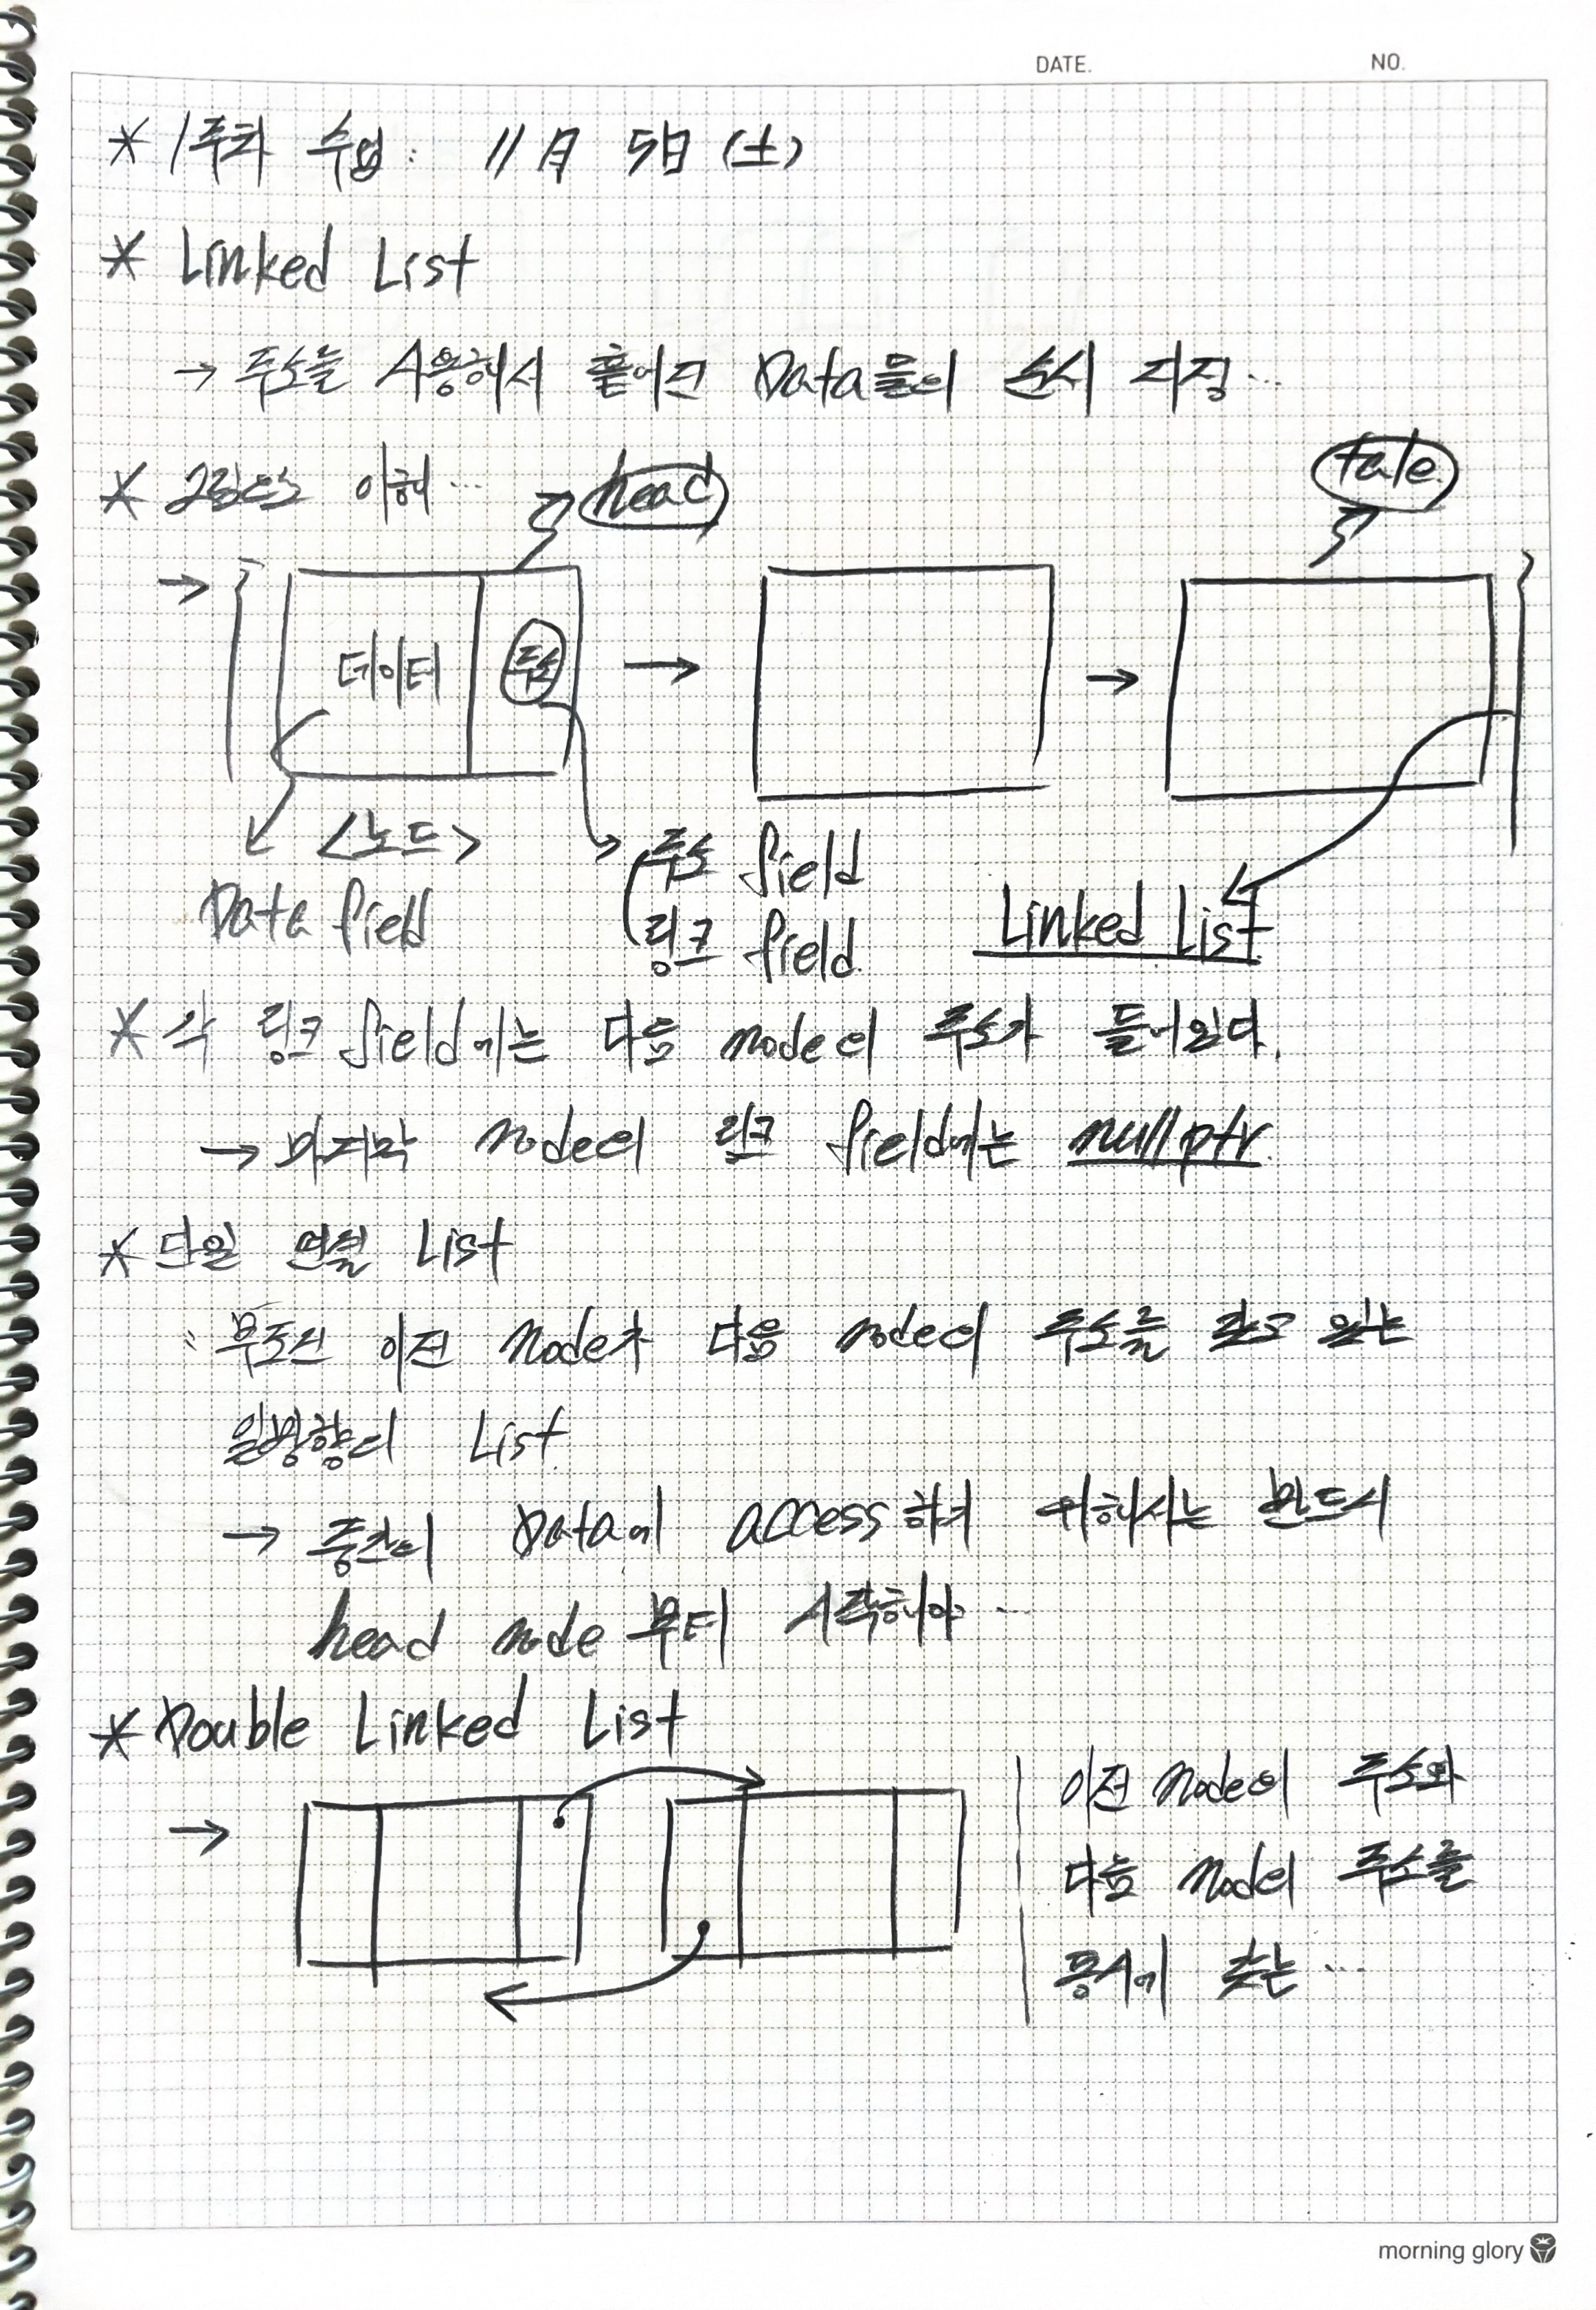 DATE.
NO.
* 1주차 수업: 11月 5日 (土)
* Linked List
→ 주소를 사용해서 흩어진 Data들의 순서 지정...
* 그림으로 이해...
head
tale.
→ 데이터 주소 → →
<노드>
Data field
주소 field
링크 field.
Linked List
* 각 링크 field에는 다음 node의 주소가 들어있다.
→ 마지막 node의 링크 field에는 nullptr.
* 단일 연결 List
: 무조건 이전 Node가 다음 node의 주소를 갖고 있는
일방향의 List.
→ 중간의 Data에 access하려 위해서는 반드시
head node부터 시작해야...
* Double Linked List
→
이전 Node의 주소와
다음 Node의 주소를
동시에 갖는...
morning glory